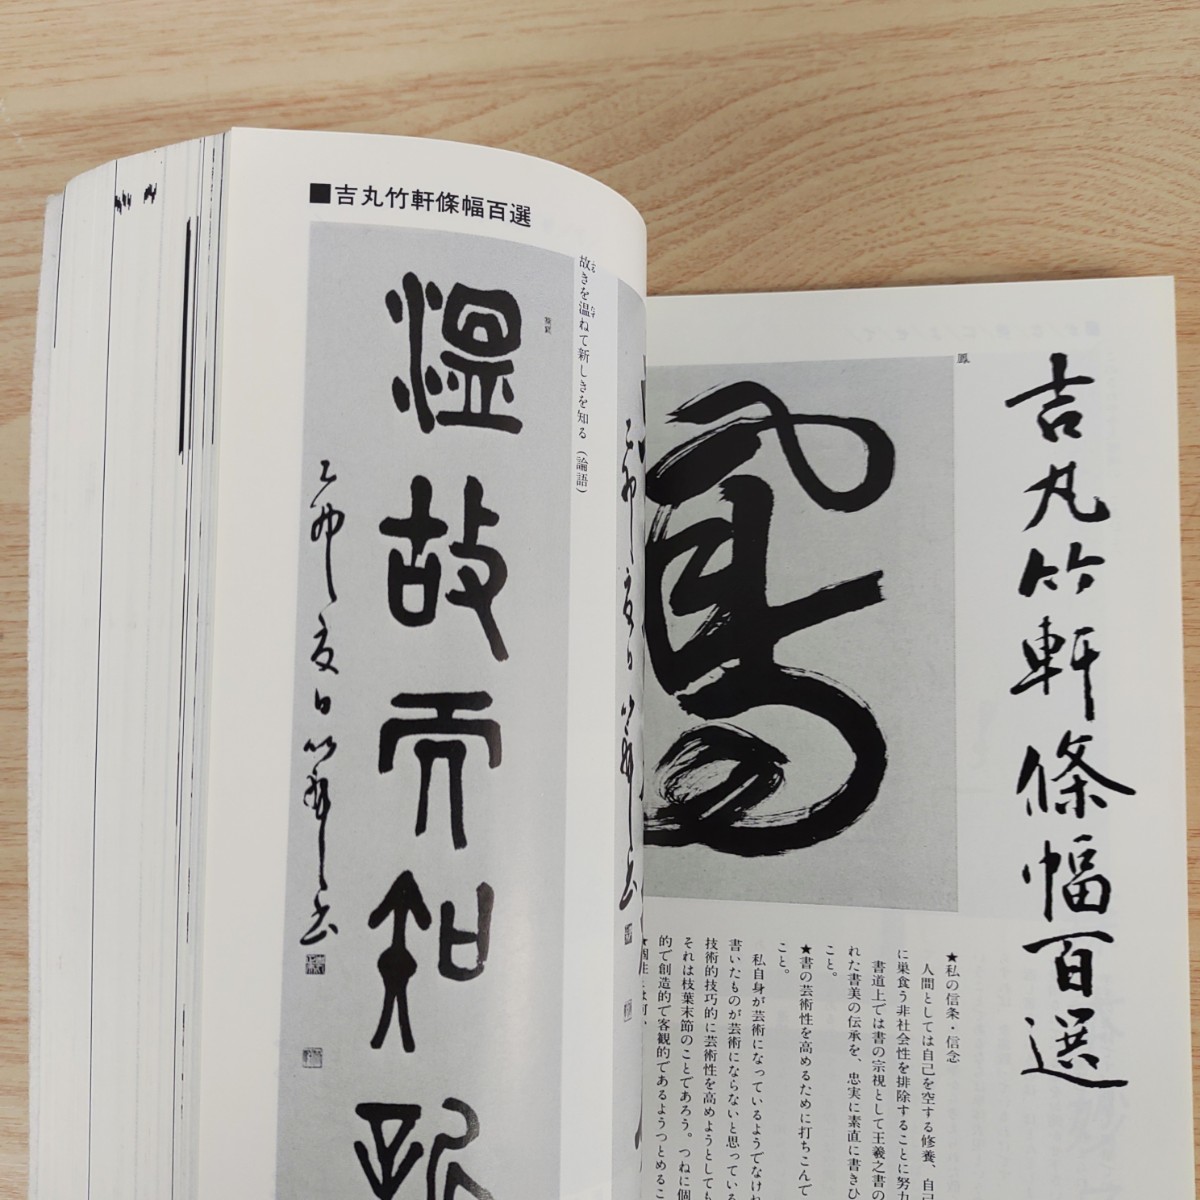 ■吉丸竹軒條幅百選
故きを温ねて新しきを知る（論語）
温故而知新
鳳
鳳
吉丸竹軒條幅百選
★私の信条・信念
人間としては自己を空する修養、自己
に巣食う非社会性を排除することに努力
書道上では書の宗祖として王羲之書の
れた書美の伝承を、忠実に素直に書きひ
こと。
★書の芸術性を高めるために打ちこんで
こと。
私自身が芸術になっているようでなけれ
書いたものが芸術にならないと思っている
技術的技巧的に芸術性を高めようとしても
それは枝葉末節のことであろう。つねに個
的で創造的で客観的であるようつとめるこ